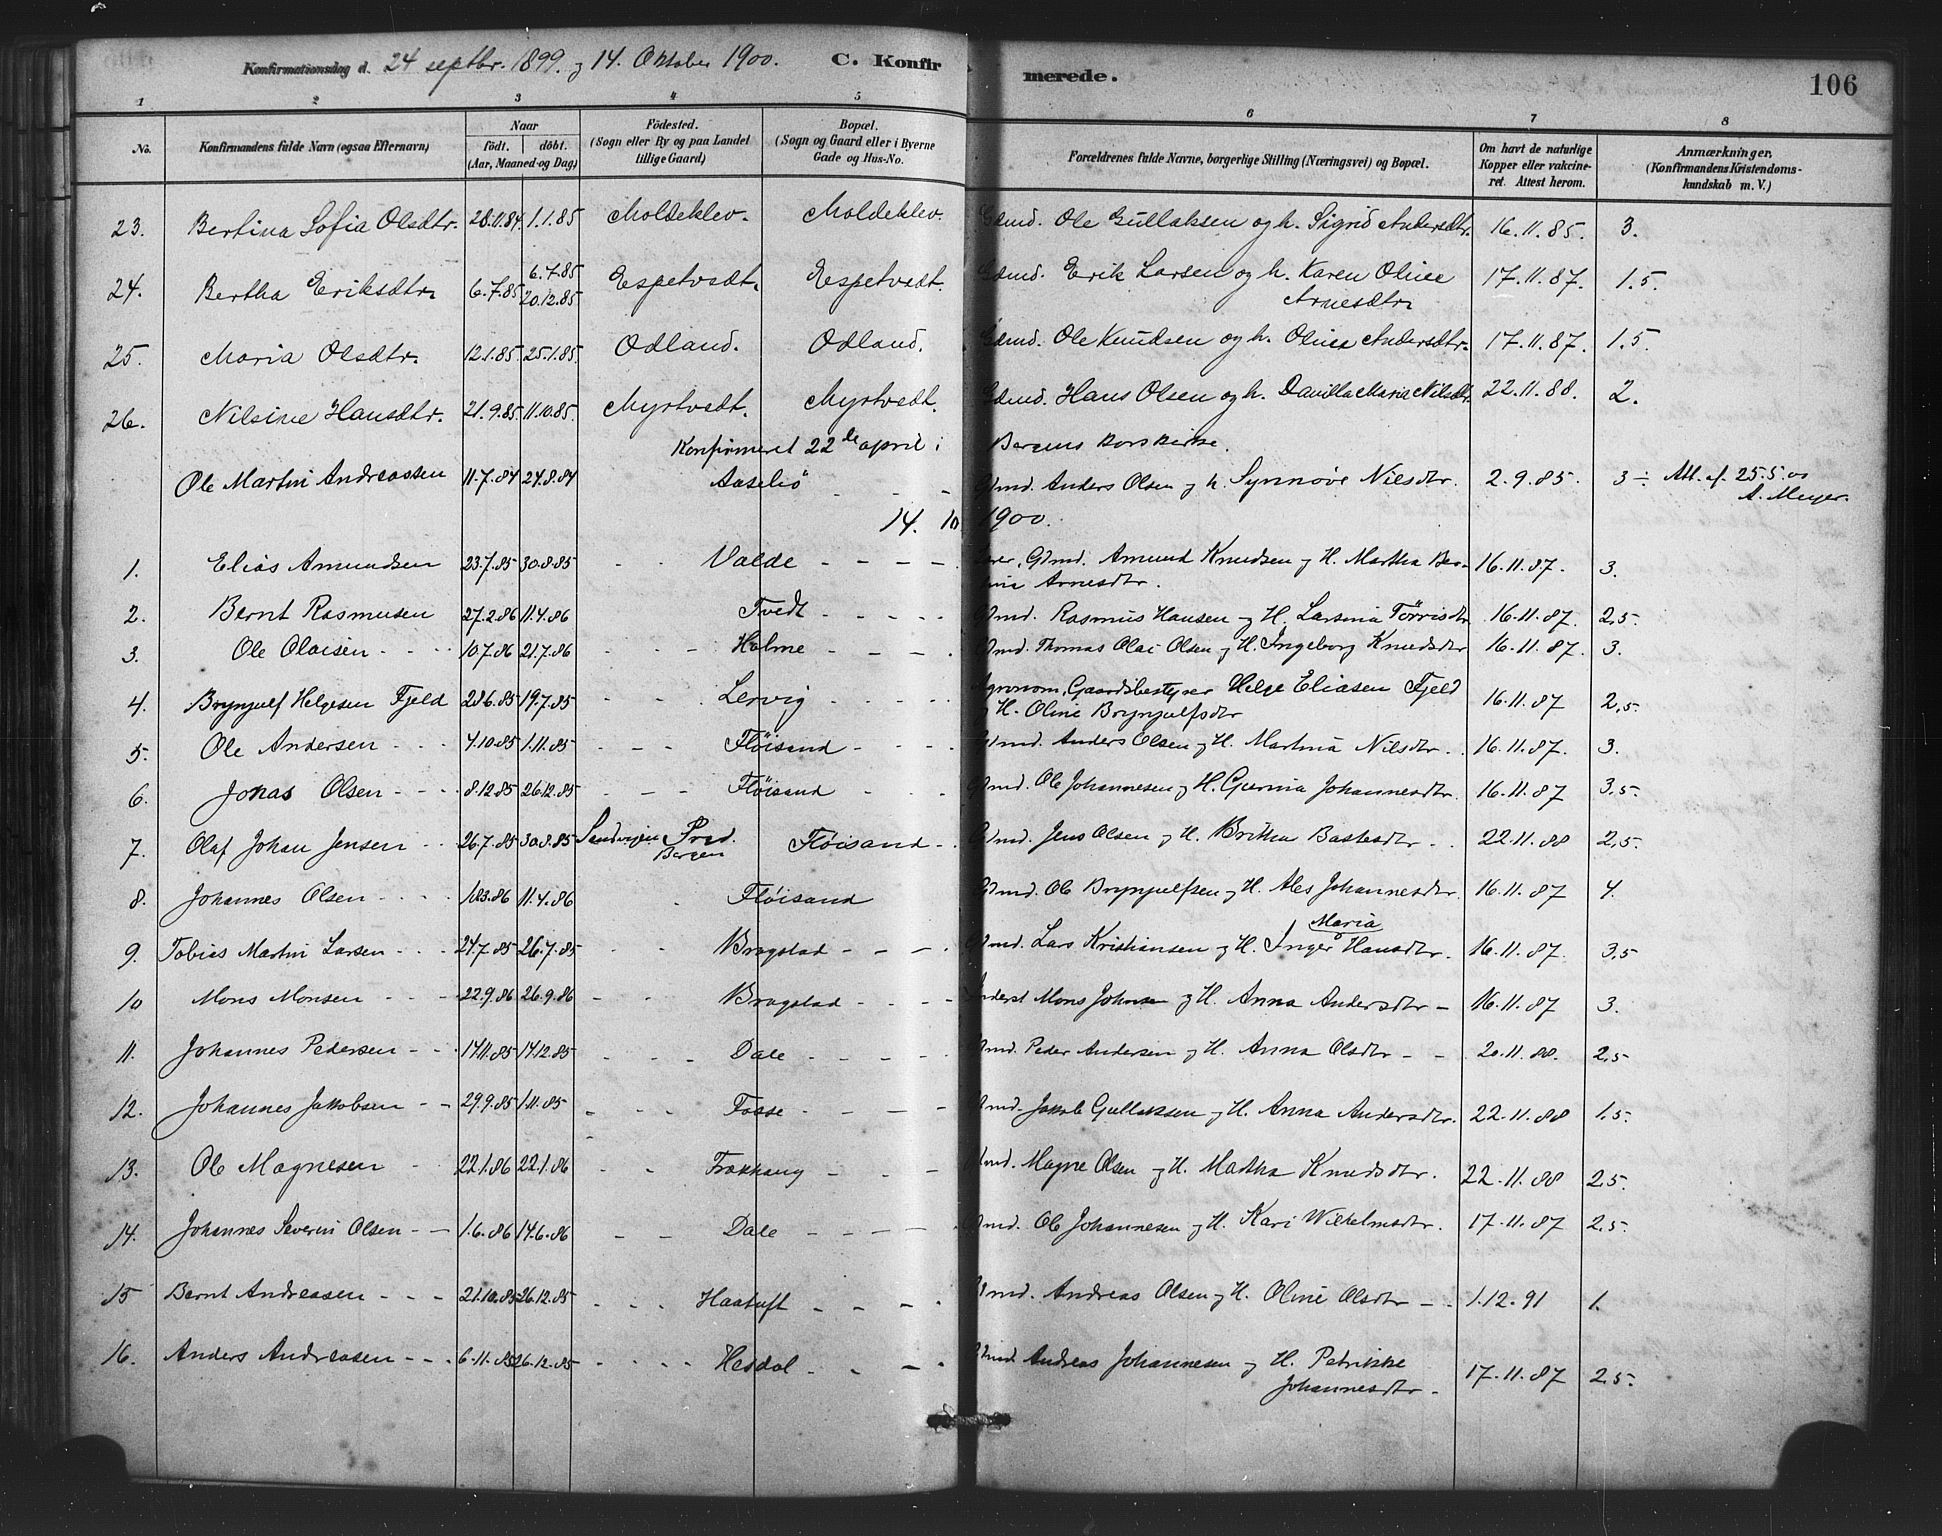 Konfirmationsdag d. 24 septbr. 1899. og 14. Oktober 1900. C. Konfir merede. 106
1 2 3 4 5 6 7 8
No. Konfirmandens fulde Navn (ogsaa Efternavn) Naar födt. döbt. (Aar, Maaned og Dag) Födested. (Sogn eller By og paa Landet tillige Gaard) Bopæl. (Sogn og Gaard eller i Byerne Gade og Hus-No. Forældrenes fulde Navne, borgerlige Stilling (Næringsvei) og Bopæl. Om havt de naturlige Kopper eller vakcineret. Attest herom. Anmærkninger, (Konfirmandens Kristendomskundskab m. V.)
23. Bertina Sofia Olsdtr. 28.11.84. 1.1.85 Moldeklev. Moldeklev. Gdmd. Ole Gullaksen og h. Sigrid Andersdtr. 16.11.85. 3.
24. Bertha Eriksdtr. 6.7.85 6.7.85 20.12.85 Espetvedt. Espetvedt. Gdmd. Erik Larsen og h. Karen Oline Arnesdtr. 17.11.87. 1.5.
25. Maria Olsdtr. 12.1.85 25.1.85. Odland. Odland. Gdmd. Ole Knudsen og h. Olina Andersdtr. 17.11.87. 1.5.
26. Nilsine Hansdtr. 21.9.85 11.10.85. Myrtvedt. Myrtvedt. Gdmd. Hans Olsen og h. Davilla Maria Nilsdtr. 22.11.88. 2.
Konfirmeret 22de april i Bergens Korskirke.
Ole Martin Andreassen 11.7.84 24.8.84 Aaseliö - - - Gdmd. Anders Olsen og h. Synnöve Nilsdtr. 2.9.85. 3 ÷ Att. af. 25.5.00 A. Meyer.
14. 10 1900.
1. Elias Amundsen 23.7.85 30.8.85 - - Valde - - - - Gdmd. Amund Knudsen og H. Martha Arnesdtr. 16.11.87. 3.
2. Bernt Rasmusen 27.2.86 11.4.86 Tvedt - - - - Gdmd. Rasmus Hansen og H. Larsina Törrisdtr 16.11.87. 2,5
3. Ole Olaisen - - - 10.7.86 21.7.86 - - - Holme - - - - Gdmd. Thomas Olai Olsen og H. Ingeborg Knudsdtr 16.11.87. 3.
4. Brynjulf Helgesen Fjeld 28.6.85 19.7.85 - - . Lervig - - - - Agronom, Gaardsbestyrer Helge Eliasen Fjeld
og H. Oline Brynjulfsdtr 16.11.87 2,5.
5. Ole Andersen - - - 4.10.85 1.11.85 - - - Flöisand - - - - Gdmd. Anders Olsen og H. Martina Nilsdtr. . 16.11.87. 3.
6. Jonas Olsen - - - 8.12.85 26.12.85 - - - Flöisand - - - Gdmd. Ole Johannesen og H. Gurina Johannesdtr. 16.11.87 3,5.
7. Olaf Johan Jensen - - 26.7.85 30.8.85 Sandvigen Præd. Bergen Flöisand - . Gdmd. Jens Olsen og H. Britha Bastesdtr - . 22.11.88 2,5
8. Johannes Olsen - - - - 18.3.86 11.4.86 . Flöisand Gdmd. Ole Brynjulfsen og H. Ales Johannesdtr. 16.11.87 4.
9. Tobias Martin Larsen - - - 24.7.85 26.7.85 - - Brogstad - - - - Gdmd. Lars Kristiansen og H. Inger Maria Hansdtr. 16.11.87 3,5
10 Mons Monsen - - - 22.9.86 26.9.86 - - Brogstad - - - - Inderst Mons Johnsen og H. Anna Andersdtr - 16.11.87 3.
11. Johannes Pedersen - - - 14.11.85 14.12.85 - - - Dale - - - - Gdmd. Peder Andersen og H. Anna Olsdtr - - 20.11.88. 2,5
12. Johannes Jakobsen - - 29.9.85 1.11.85 - - - Fosse - - - - Gdmd. Jakob Gullaksen og H. Anna Andersdtr. 22.11.88 1.5.
13. Ole Magnesen - 22.1.86 22.1.86 - - Frokhaug - - - Gdmd. Magne Olsen og H. Martha Knudsdtr. 22.11.88 2.5.
14. Johannes Severin Olsen - - 1.6.86 14.6.86 - - Dale - - - - Gdmd. Ole Johannesen og H. Kari Wilhelmsdtr. 17.11.87 2,5.
15 Bernt Andreasen - - - 21.10.85 26.12.85 - - - Haatuft - - - - Gdmd. Andreas Olsen og H. Oline Olsdtr - . 1.12.91 1.
16. Anders Andreasen - - - 6.11.85 26.12.85 - - - - Heddal - - - - Gdmd Andreas Johannesen og H. Petrikke
Johannesdtr - 17.11.87 2.5.